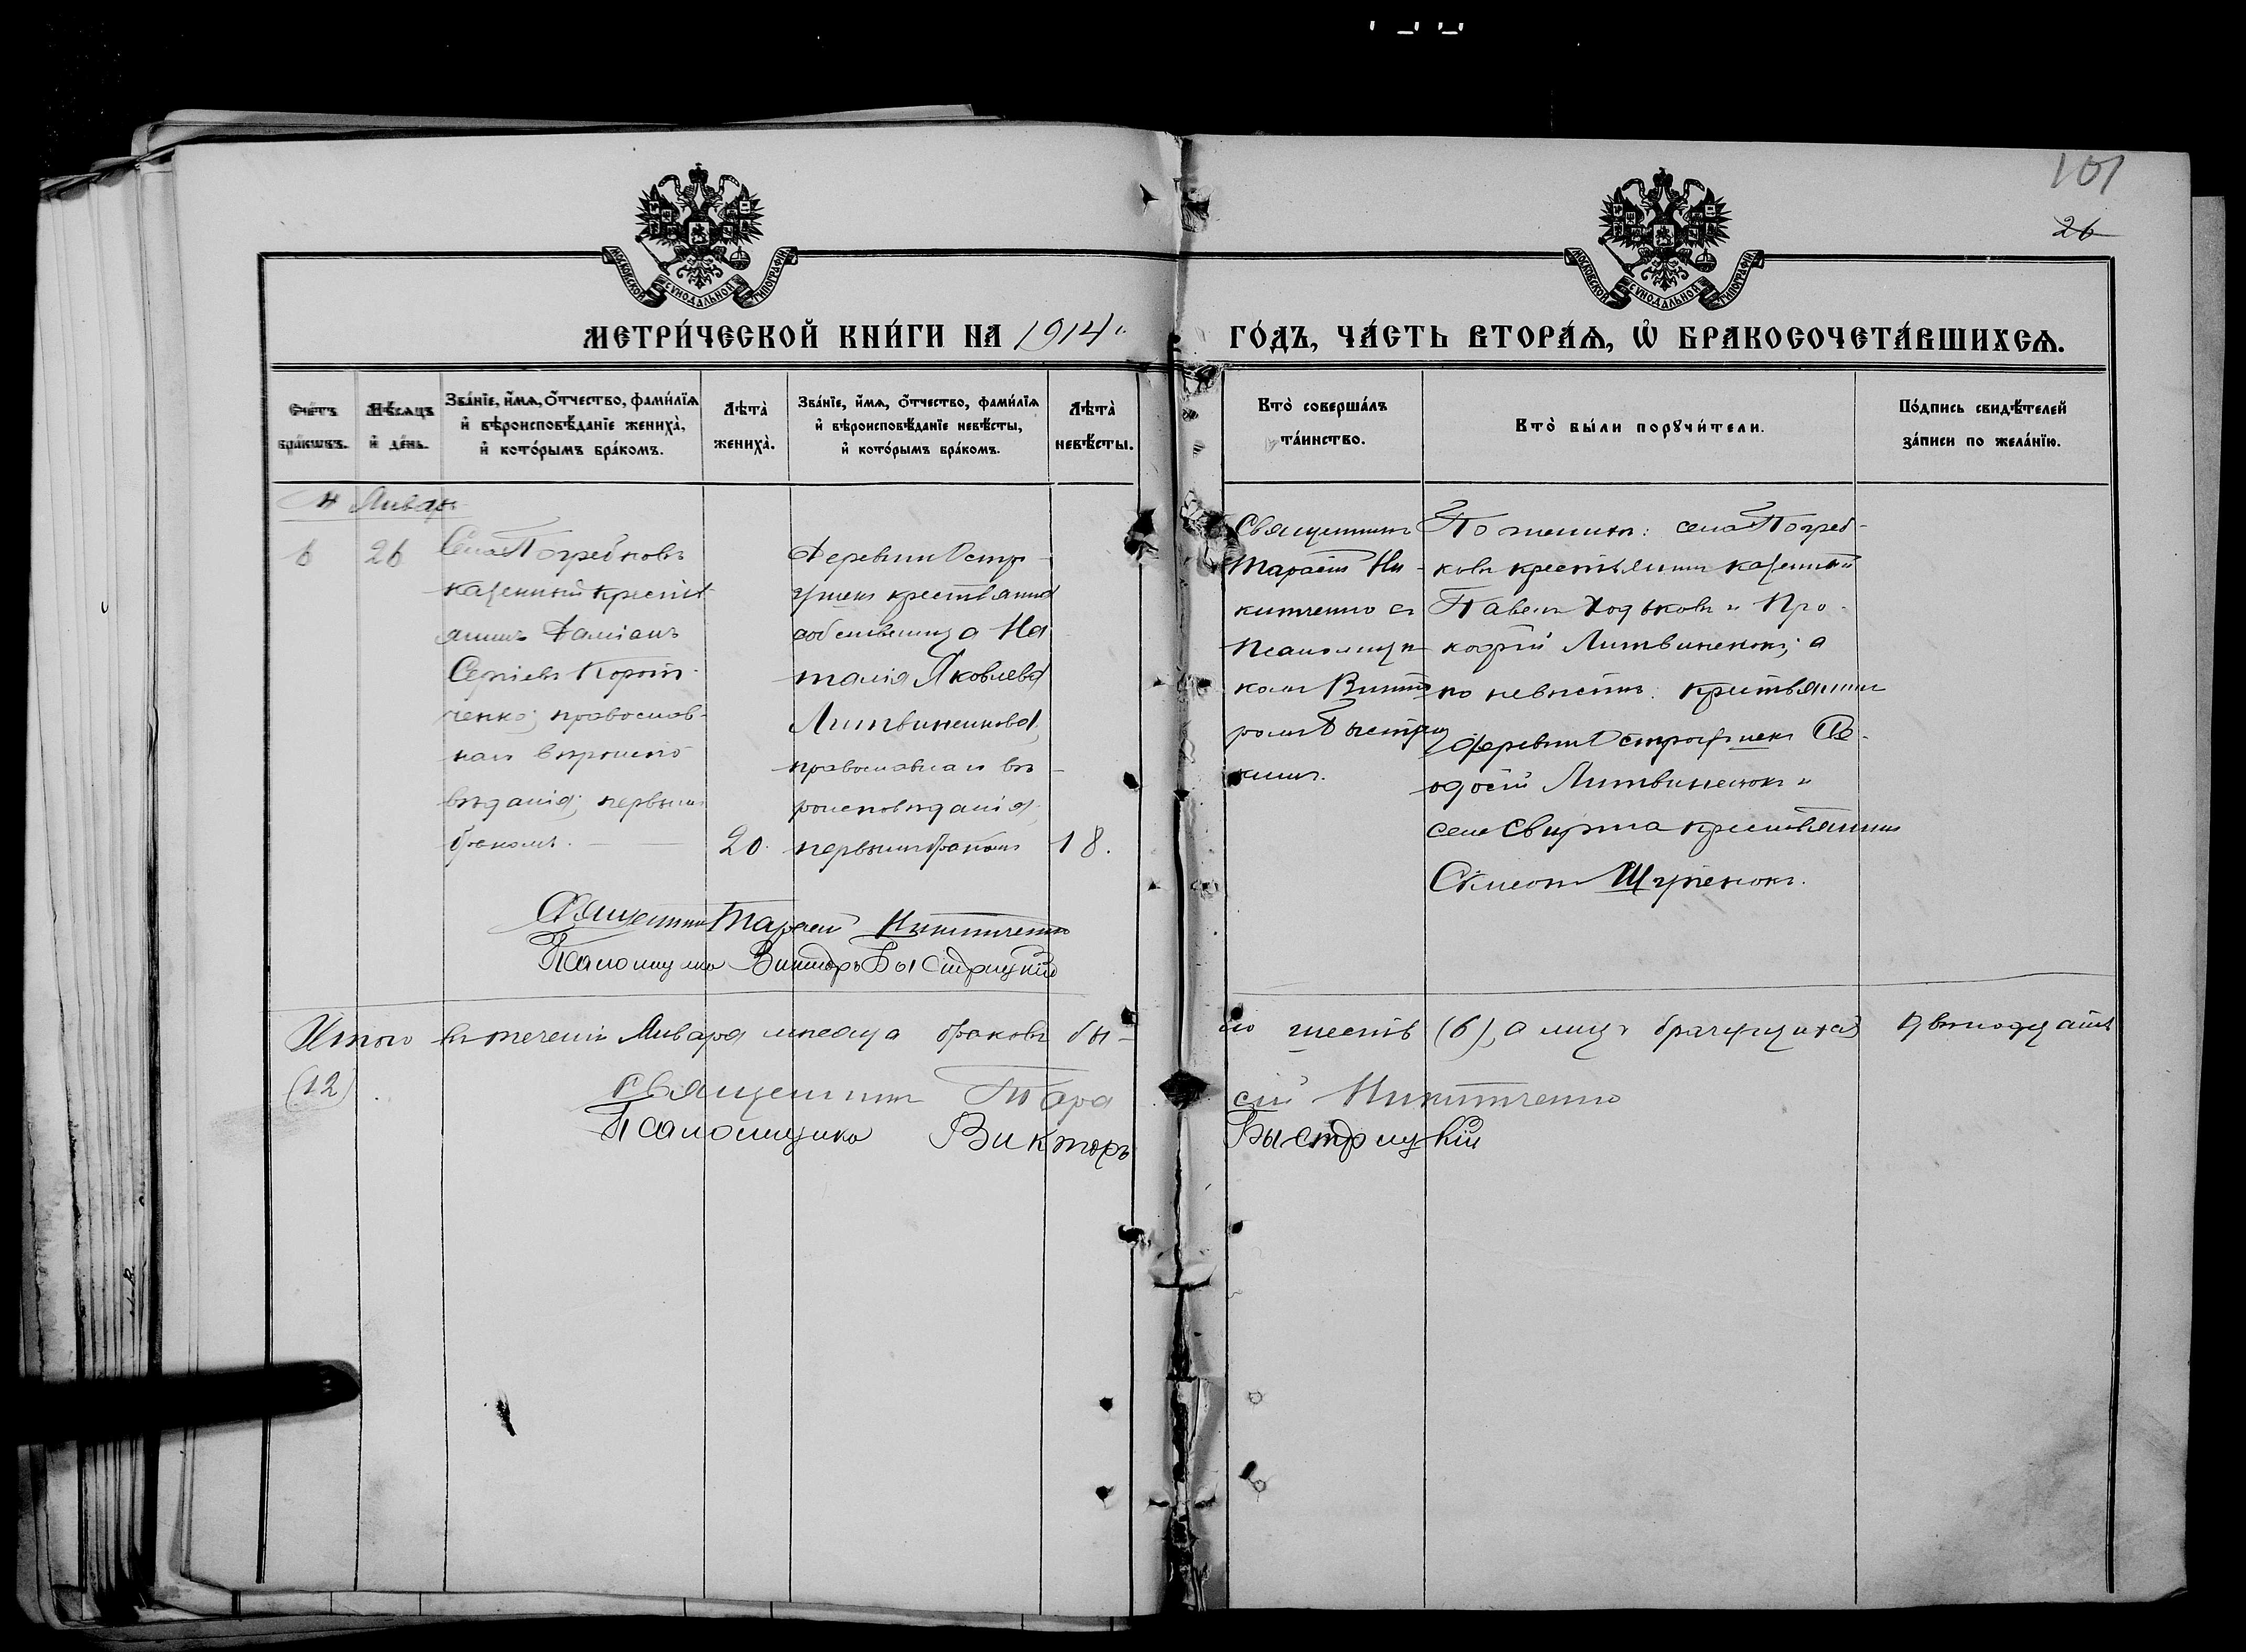 101
26
МОСКОВСКОЙ СѴНОДАЛЬНОЙ ТИПОГРАФІИ
МОСКОВСКОЙ СѴНОДАЛЬНОЙ ТИПОГРАФІИ
МЕТРИ́ЧЕСКОЙ КНИ́ГИ НА 1914 г.
ГО́ДЪ, ЧА́СТЬ ВТОРА́Ѧ, Ѡ҆ БРАКОСОЧЕТА́ВШИХСѦ.
Сче́тъ
бра́кѡвъ.
Мѣ́сяцъ
и҆ де́нь.
Зва́нїе, и҆́мѧ, ѻ҆́тчество, фами́лїѧ
и҆ вѣроисповѣ́данїе жениха̀,
и҆ кото́рымъ бра́комъ.
Лѣта̀
жениха̀.
Зва́нїе, и҆́мѧ, ѻ҆́тчество, фами́лїѧ
и҆ вѣроисповѣ́данїе невѣ́сты,
и҆ кото́рымъ бра́комъ.
Лѣта̀
невѣ́сты.
Кто̀ соверша́лъ
та́инство.
Кто̀ бы́ли порꙋчи́тели.
По́дпись свидѣ́телей
за́писи по жела́нїю.
Январь
6
26
Села Погребковъ
казенный крестья
янинъ Даміанъ
Сергіевъ Корот-
ченко; православ-
наго вѣроиспо
вѣданія; первымъ
бракомъ.
20.
Деревни Остро-
ушекъ крестьянка
собственница На
талія Яковлева
Литвиненкова,
православнаго вѣ-
роисповѣданія,
первымъ бракомъ
18.
Священникъ
Тарасій Ни-
китченко съ
псаломщи-
комъ Викто
ромъ Быстриц
кимъ.
По женихѣ: села Погреб-
ковъ крестьяне казенный
Павелъ Ходьковъ и Про-
кофій Литвиненокъ; а
по невѣстѣ: крестьянинъ
деревни Остроушекъ Ѳе-
одосій Литвиненокъ и
села Свирка крестьянинъ
Симеонъ
Священникъ Тарасій Никитченко
Псаломщикъ Викторъ Быстрицкій
Итого въ теченіи Января мѣсяца браковъ бы-
ло шесть (6), а лицъ брачущихся двѣнадцать
(12).
Священникъ Тара
сій Никитченко
Псаломщикъ Викторъ
Быстрицкій